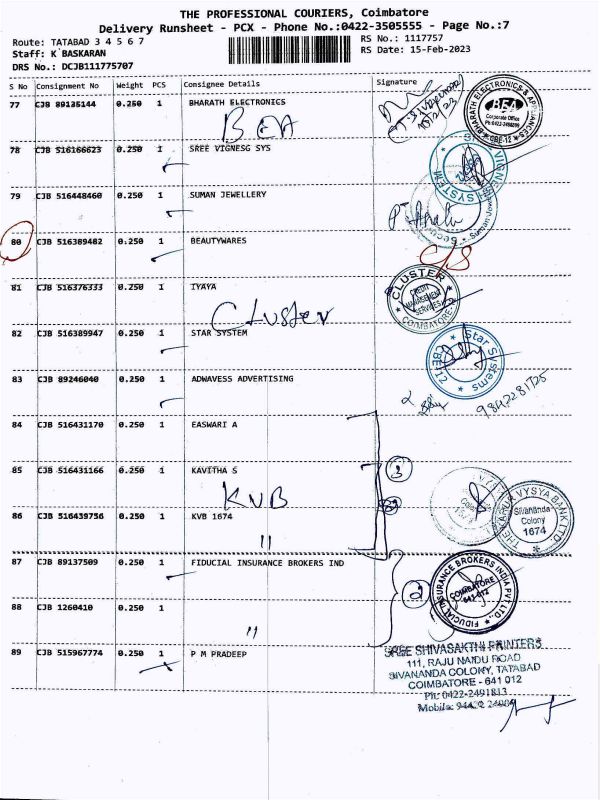 THE PROFESSIONAL COURIERS, Coimbatore
Delivery Runsheet - PCX - Phone No.:0422-3505555 - Page No.:7
Route: TATABAD 3 4 5 6 7
RS No.: 1117757
Staff: K BASKARAN
RS Date: 15-Feb-2023
DRS No.: DCJB111775707
S No Consignment No Weight PCS Consignee Details Signature
77 CJB 89135144 0.250 1 BHARATH ELECTRONICS
BEA
BHARATH ELECTRONICS & APPLIANCES
BEA
Corporate Office
CBE-12
78 CJB 516166623 0.250 1 SREE VIGNESG SYS
79 CJB 516448460 0.250 1 SUMAN JEWELLERY
80 CJB 516389482 0.250 1 BEAUTYWARES
C/S
81 CJB 516376333 0.250 1 IYAYA
Cluster
CLUSTER
CREDIT
MANAGEMENT
SERVICES
COIMBATORE
82 CJB 516389947 0.250 1 STAR SYSTEM
Star Systems
CBE 12
83 CJB 89246040 0.250 1 ADWAVESS ADVERTISING
9842281725
84 CJB 516431170 0.250 1 EASWARI A
85 CJB 516431166 0.250 1 KAVITHA S
3
KVB
86 CJB 516439756 0.250 1 KVB 1674
"
THE KARUR VYSYA BANK LTD
Sivananda
Colony
1674
87 CJB 89137509 0.250 1 FIDUCIAL INSURANCE BROKERS IND
FIDUCIAL INSURANCE BROKERS INDIA PVT LTD
COIMBATORE
641 012
88 CJB 1260410 0.250 1
"
89 CJB 515967774 0.250 1 P M PRADEEP
SREE SHIVASAKTHI PRINTERS
111, RAJU NAIDU ROAD
SIVANANDA COLONY, TATABAD
COIMBATORE - 641 012
Ph: 0422-2491813